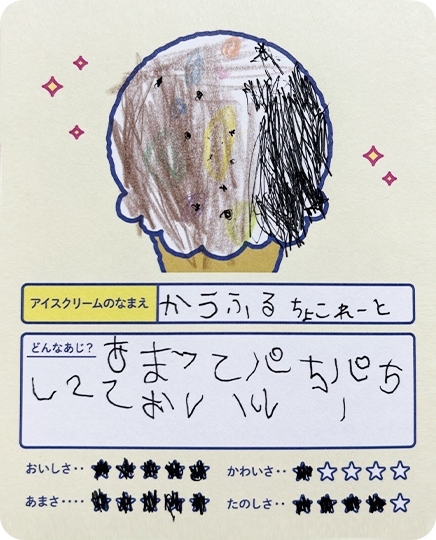 アイスクリームのなまえ かうふる ちょこれーと
どんなあじ? あまくてパちパち
してておいしい
おいしさ‥ ★★★★★ かわいさ‥ ★☆☆☆☆
あまさ‥‥ ★★★★★ たのしさ‥ ★★★★☆